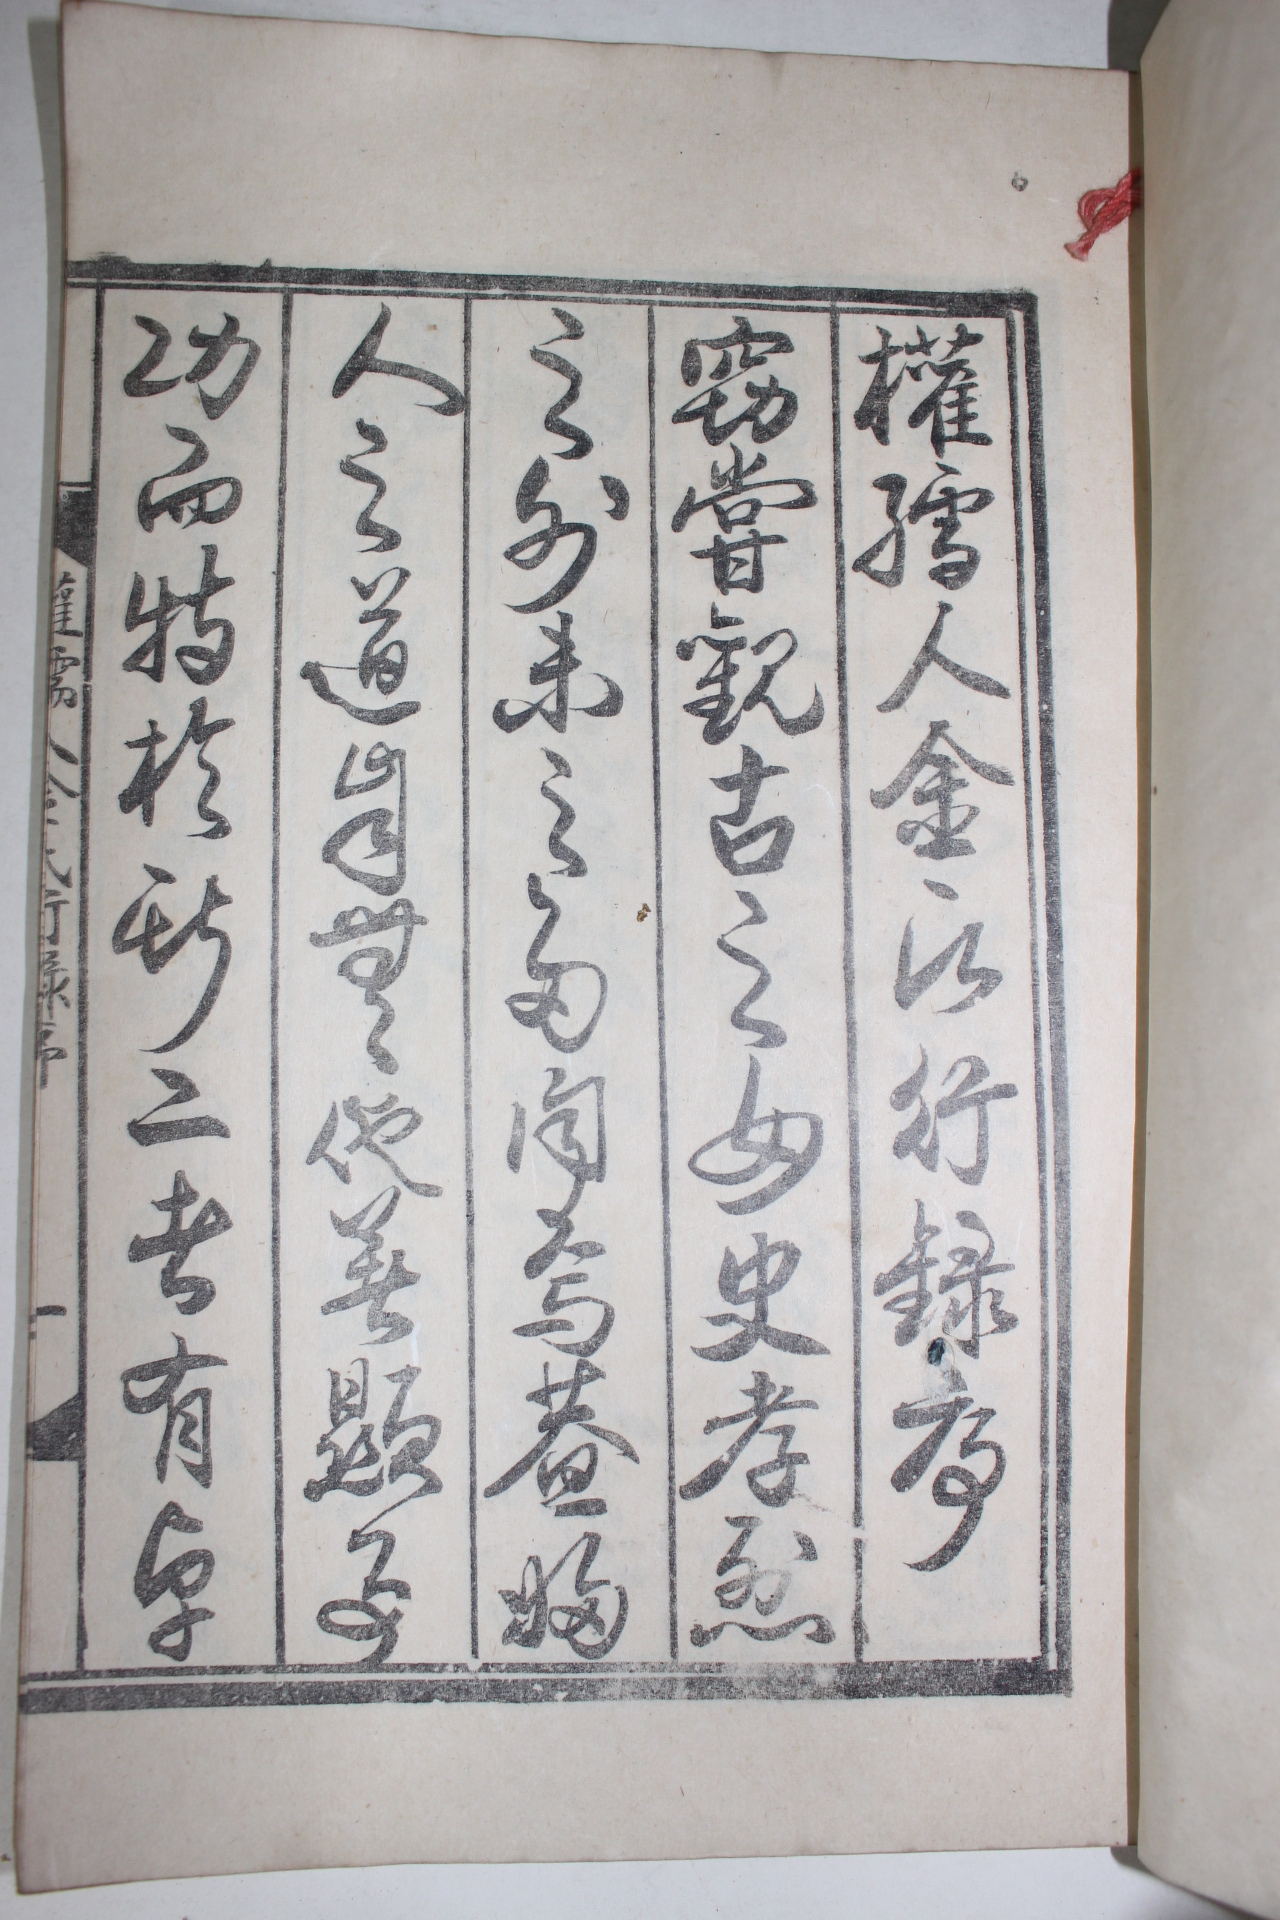 權孺人金氏行錄序
竊嘗觀古之女史孝烈
之外未之多聞焉蓋婦
人之道無他善顯
功而特於斯二者有卓
權孺人金氏行錄序 一